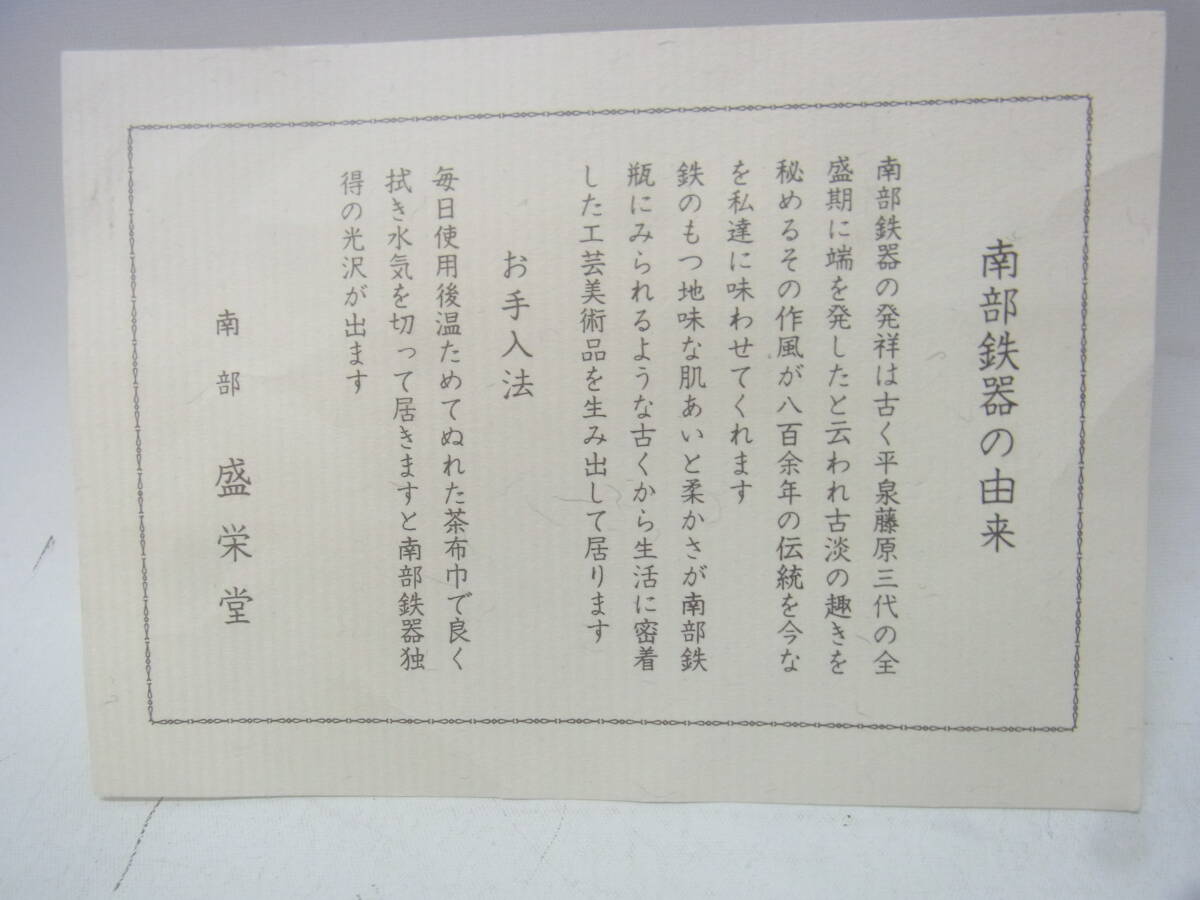 南部鉄器の由来
南部鉄器の発祥は古く平泉藤原三代の全
盛期に端を発したと云われ古淡の趣きを
秘めるその作風が八百余年の伝統を今な
を私達に味わせてくれます
鉄のもつ地味な肌あいと柔かさが南部鉄
瓶にみられるような古くから生活に密着
した工芸美術品を生み出して居ります
お手入法
毎日使用後温ためてぬれた茶布巾で良く
拭き水気を切って居きますと南部鉄器独
得の光沢が出ます
南部 盛栄堂